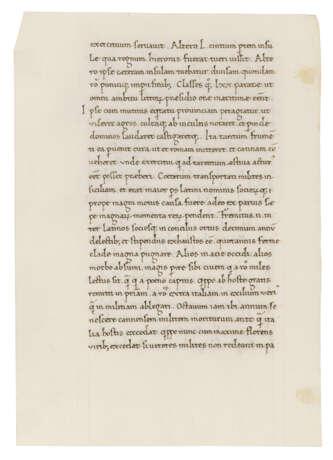 exercitum seruauit. Altero L. cintium ptem insu
Le qua regnum hieronis fuerat tueri iussit. Altero
ro ipse ceteram insulam tuebatur diuisam quondam
ro punicę imperii finib;. Classe q; Lxx. parate ut
omni ambitu litorū presidio ore maritime eēnt.
Ipse cum mutinis equitatu prouinciam peragrabat ut
uiseret agros. cultaq; ab incultis notaret et pinde
dominos laudaret castigaretq;. Ita tantum frumen
ti ea puenit cura. ut et romam mitteret. et cannam cō
ueheret unde exercitui q ad tarentum ęstiua acturus
eēt posset preberi. Ceterum transportati milites in
siciliam. et erant maior ps latini nominis socioꝝq; i
prope magni motus causa fuere. adeo ex paruis se
pe magnaꝝ momenta reꝝ pendent. Fremitus n. in
ter latinos sociosq; in conciliis ortus. decimum annū
delectib; et stipendiis exhaustos eē. quotannis ferme
clade magna pugnare. Alios in acie occidi. alios
morbo absumi. magis pire sibi ciuem q a ro miles
lectus sit. q̄ q a poeno captus. qppe ab hoste gratis
remitti in priam. a ro extra italiam in exilium ueri
q in militiam ablegari. Octauum iam ibi annum se
nescere cannensem militem. moriturum ante q̄ ita
lia hostis excedat. qppe nunc cum maxime florens
virib; excedat. si ueteres milites non redeant in pa